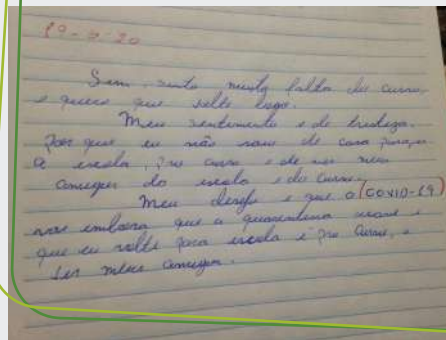 19-9-20
Sim, sinto muita falta do curso,
e quero que volte logo.
Meu sentimento e de tristeza.
Por que eu não saio de casa para
a escola, pro curso e de ver meus
amigos da escola e do curso.
Meu desejo e que o (COVID-19)
vai embora que a quarentena acabe e
que eu volte para escola e pro curso, e
ver meus amigos.